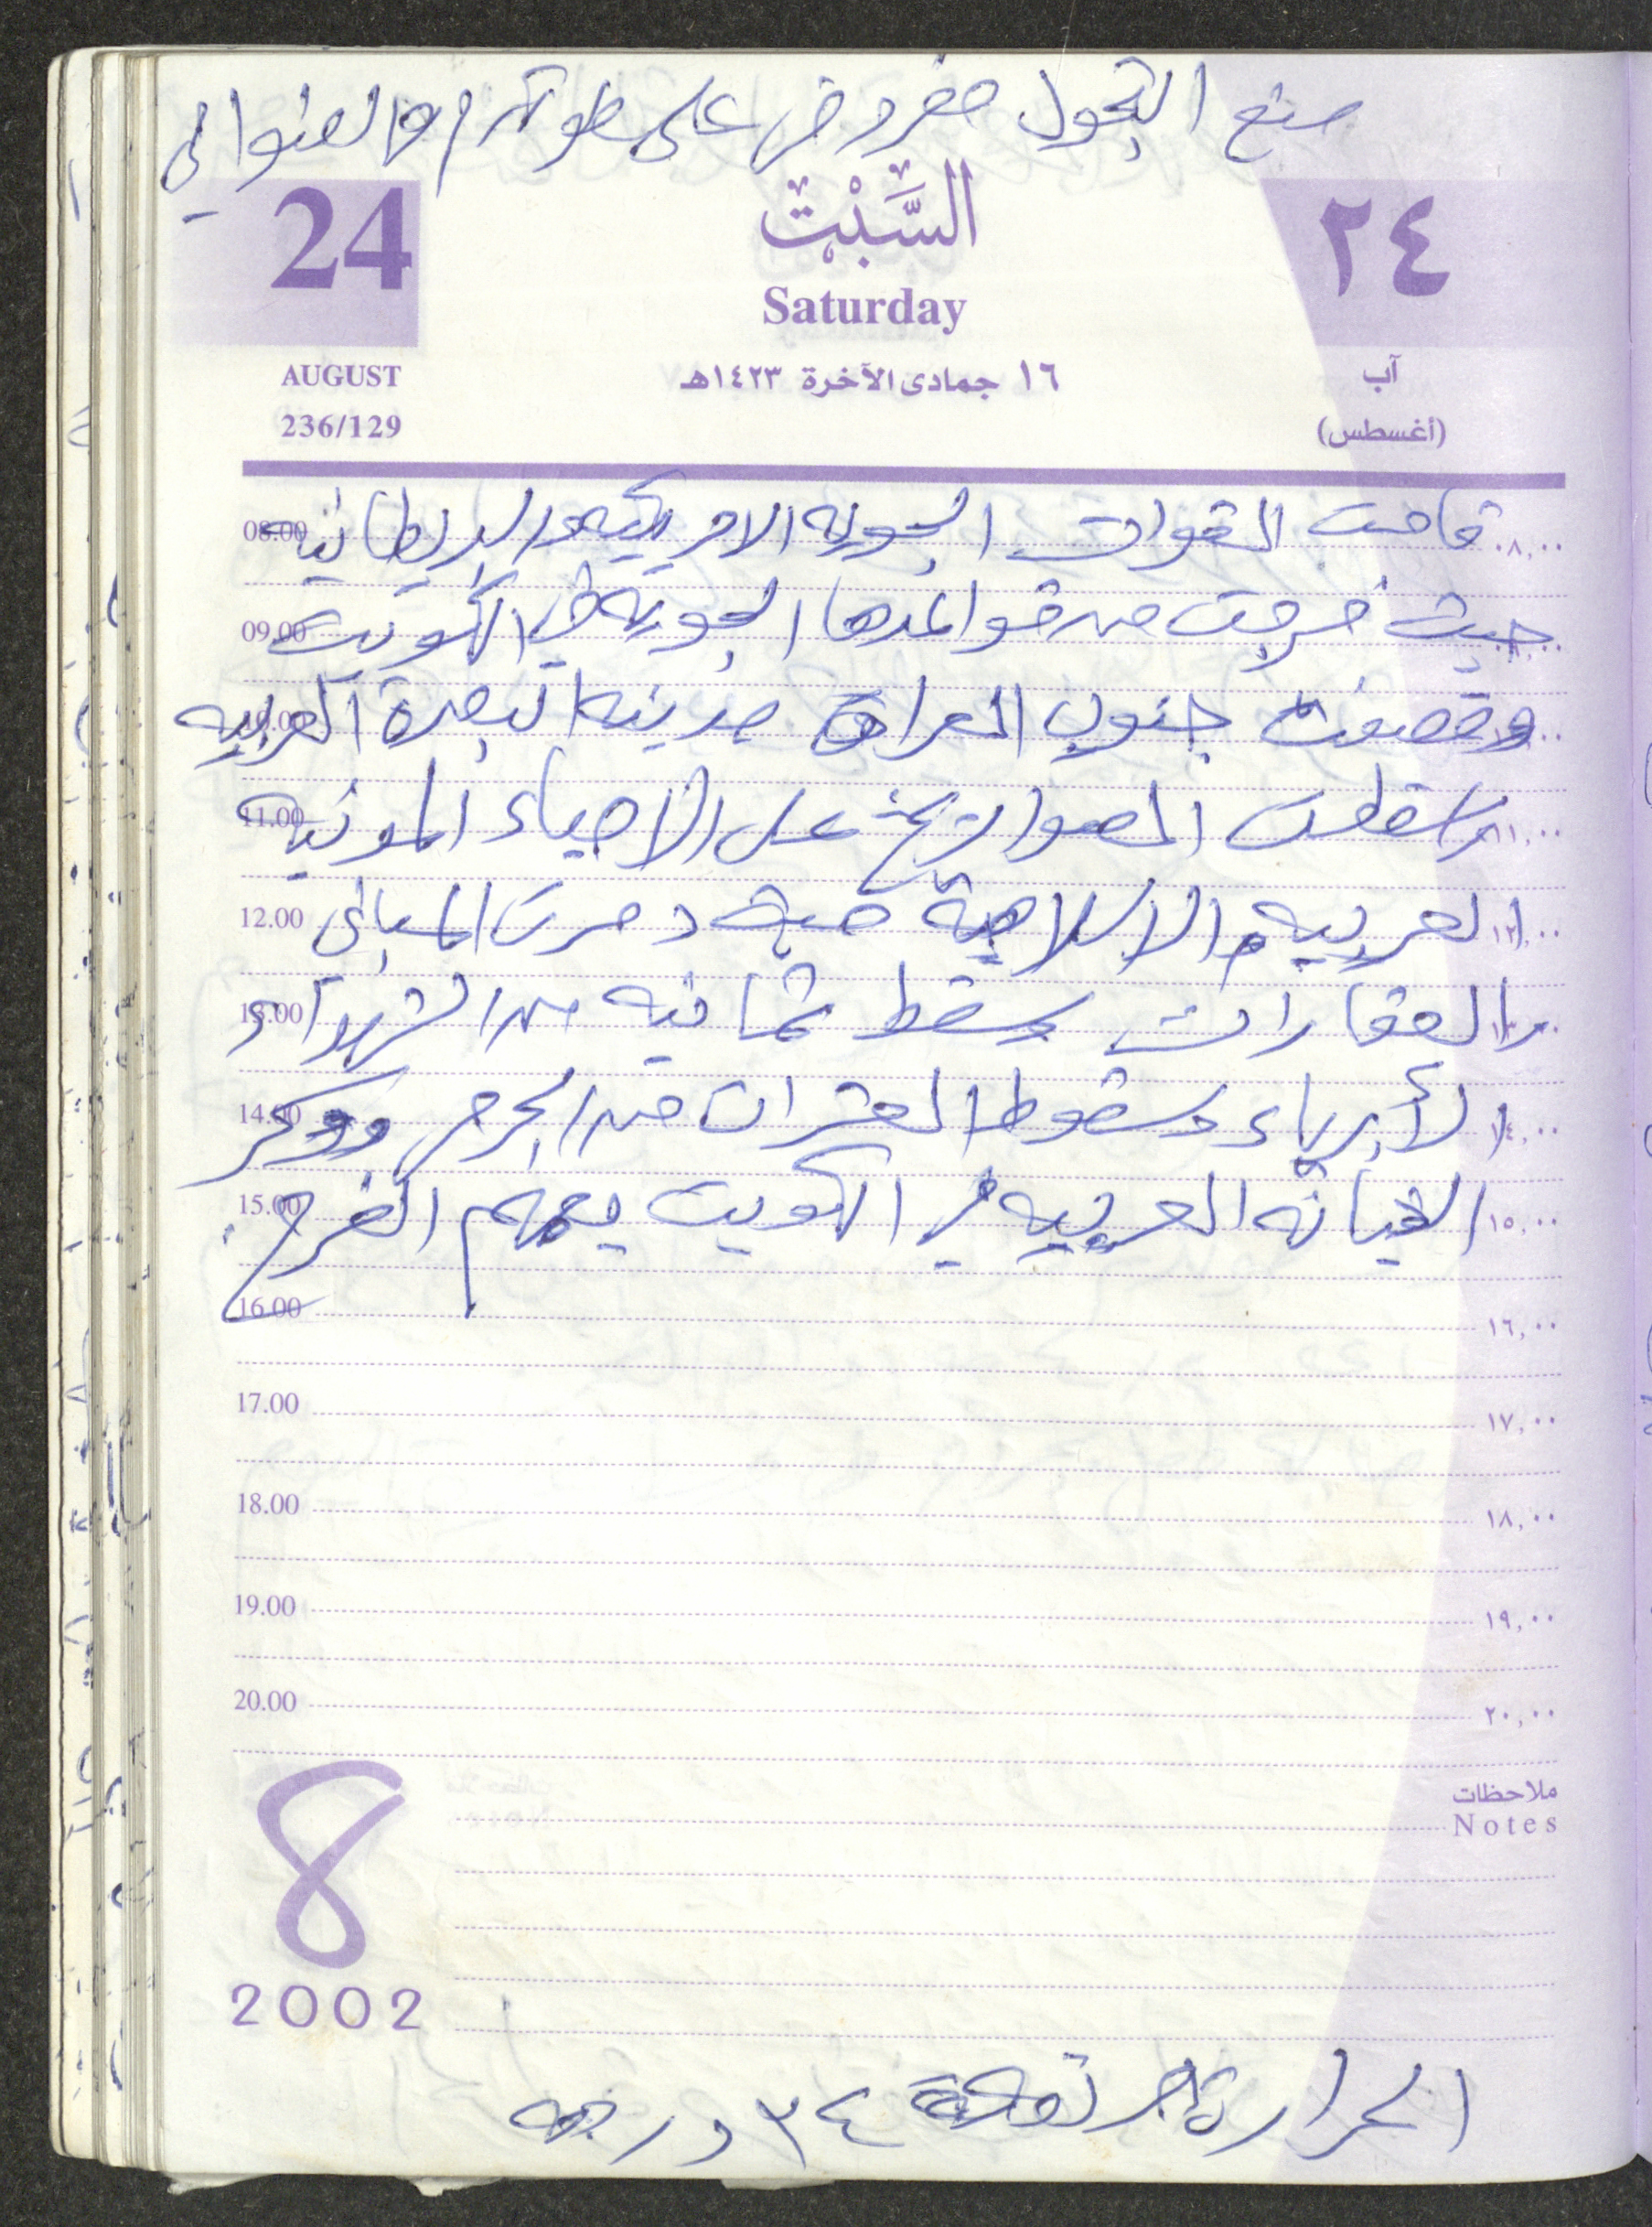 منع التجول مفروض على طولكرم والضواحي
24
السَّبْت
٢٤
Saturday
AUGUST
١٦ جمادى الآخرة ١٤٢٣هـ
آب
236/129
(أغسطس)
08.00 قامت القوات الجويه الامريكيه والبريطانيه ٠٨,٠٠
09.00 حيث خرجت من قواعدها الجويه في الكويت
وقصفت جنوب العراق مدينه البصرة العربيه
11.00 وسقطت الصواريخ على الاحياء المدنيه ١١,٠٠
12.00 العربيه والاسلامية حيث دمرت المباني ١٢,٠٠
13.00 والعقارات وسقط ثمانيه من الشهداء
14.00 الأبرياء وسقوط العشرات من الجرحى ووكر ١٤,٠٠
15.00 الخيانه العربيه في الكويت يعمهم الفرح ١٥,٠٠
16.00 ١٦,٠٠
17.00 ١٧,٠٠
18.00 ١٨,٠٠
19.00 ١٩,٠٠
20.00 ٢٠,٠٠
ملاحظات
Notes
8
2002
الحرارة مرتفعة ٣٤ درجه